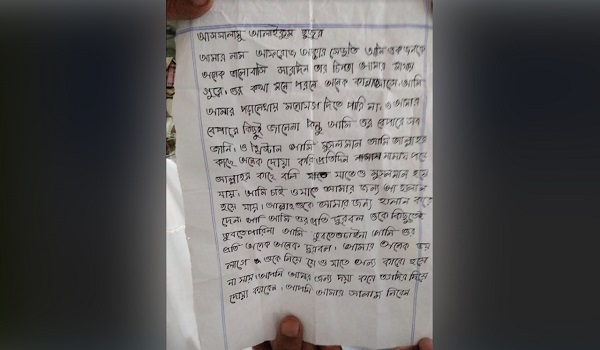 আসসালামু আলাইকুম হুজুর
আমার নাম আফরোজ আক্তার আমি একজনকে
অনেক ভালোবাসি সারাদিন তার চিন্তা আমার মাথায়
ঘুরে। ওর কথা মনে পরলে অনেক কান্না আসে। আমি
আমার পড়ালেখায় মনোযোগ দিতে পারি না। ও আমার
বেপারে কিছুই জানেনা কিন্তু আমি ওর বেপারে সব
জানি। ও খ্রিষ্টান আমি মুসলমান আমি আল্লাহর
কাছে অনেক দোয়া করি প্রতিদিন নামায পড়ে
আল্লাহর কাছে বলি যাতে ও মুসলমান হয়ে
যায়। আমি চাই ও যাতে আমার জন্য হালাল
হয়ে যায়। আল্লাহ ওকে আমার জন্য হালাল করে
দেন। আমি ওর প্রতি দুরবল ওকে কিছুতেই
ভুলতে পারিনা আমি ভুলতেও চাইনা আমি ওর
প্রতি অনেক অনেক দুরবল। আমার অনেক ভয়
লাগে ওকে নিয়ে যে ও যাতে অন্য কারো হয়ে
না যায়। আপনি আমার জন্য দয়া করে
দোয়া করবেন। আপনি আমার সালাম নিবেন